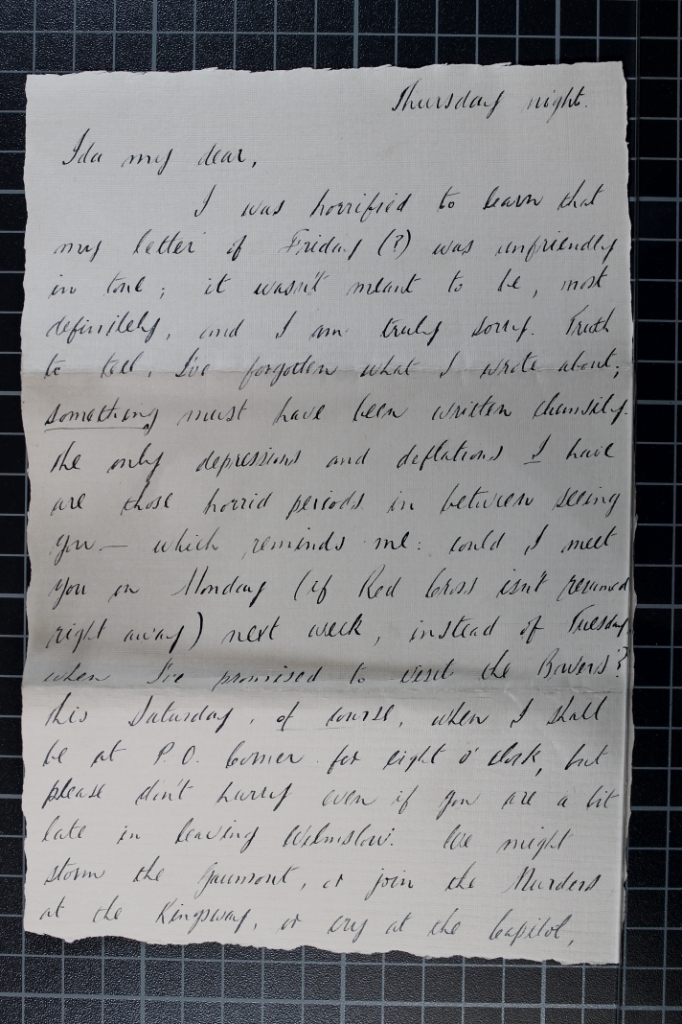 Thursday night.
Ida my dear,
I was horrified to learn that
my letter of Friday (?) was unfriendly
in tone; it wasn't meant to be, most
definitely, and I am truly sorry. Truth
to tell, I've forgotten what I wrote about;
something must have been written clumsily.
The only depressions and deflations I have
are those horrid periods in between seeing
you — which reminds me: could I meet
you on Monday (if Red Cross isn't resumed
right away) next week, instead of Tuesday
when I've promised to visit the Bowers?
This Saturday, of course, when I shall
be at P.O. Corner for eight o'clock, but
please don't hurry even if you are a bit
late in leaving Wilmslow. We might
storm the Gaumont, or join the Murders
at the Kingsway, or cry at the Capitol,